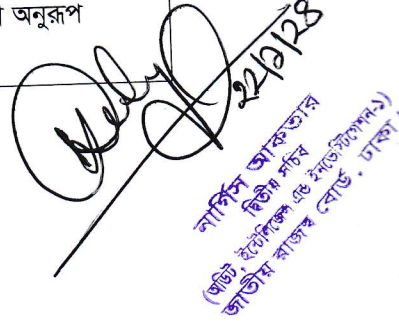 অনুরূপ
নার্গিস আকতার
দ্বিতীয় সচিব
(অডিট, ইন্টেলিজেন্স এন্ড ইনভেস্টিগেশন-১)
জাতীয় রাজস্ব বোর্ড, ঢাকা।